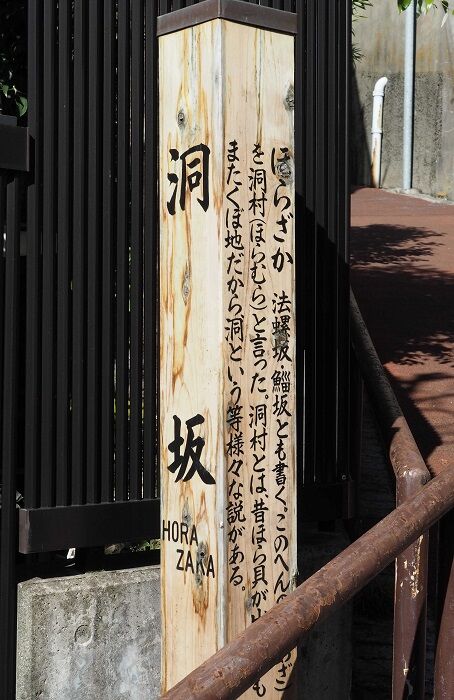 洞坂
HORA
ZAKA
ほらざか 法螺坂・鯔坂とも書く。このへんの ざ
を洞村(ほらむら)と言った。洞村とは、昔ほら貝が も
またくぼ地だから洞という等様々な説がある。